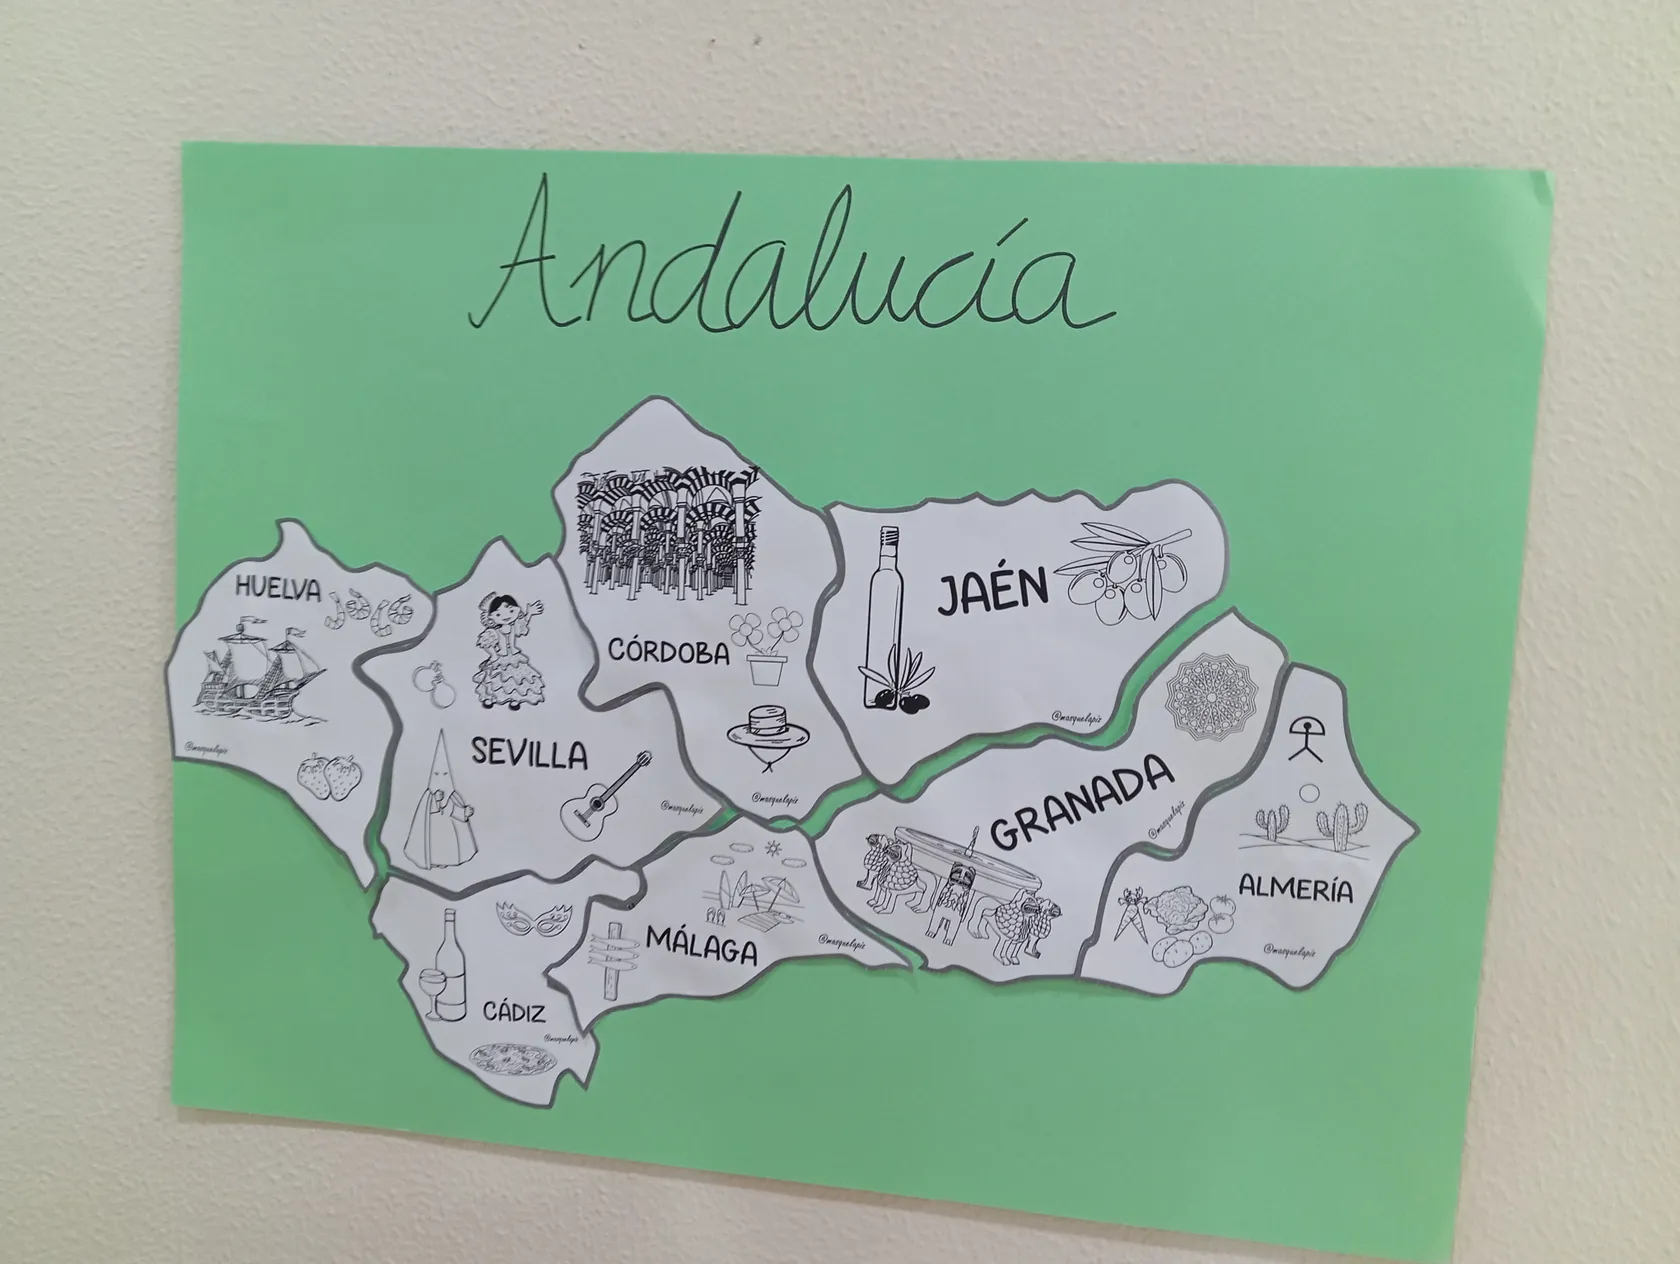 Andalucía
HUELVA
@masquelapiz
SEVILLA
@masquelapiz
CÓRDOBA
@masquelapiz
JAÉN
@masquelapiz
GRANADA
@masquelapiz
ALMERÍA
@masquelapiz
MÁLAGA
@masquelapiz
CÁDIZ
@masquelapiz